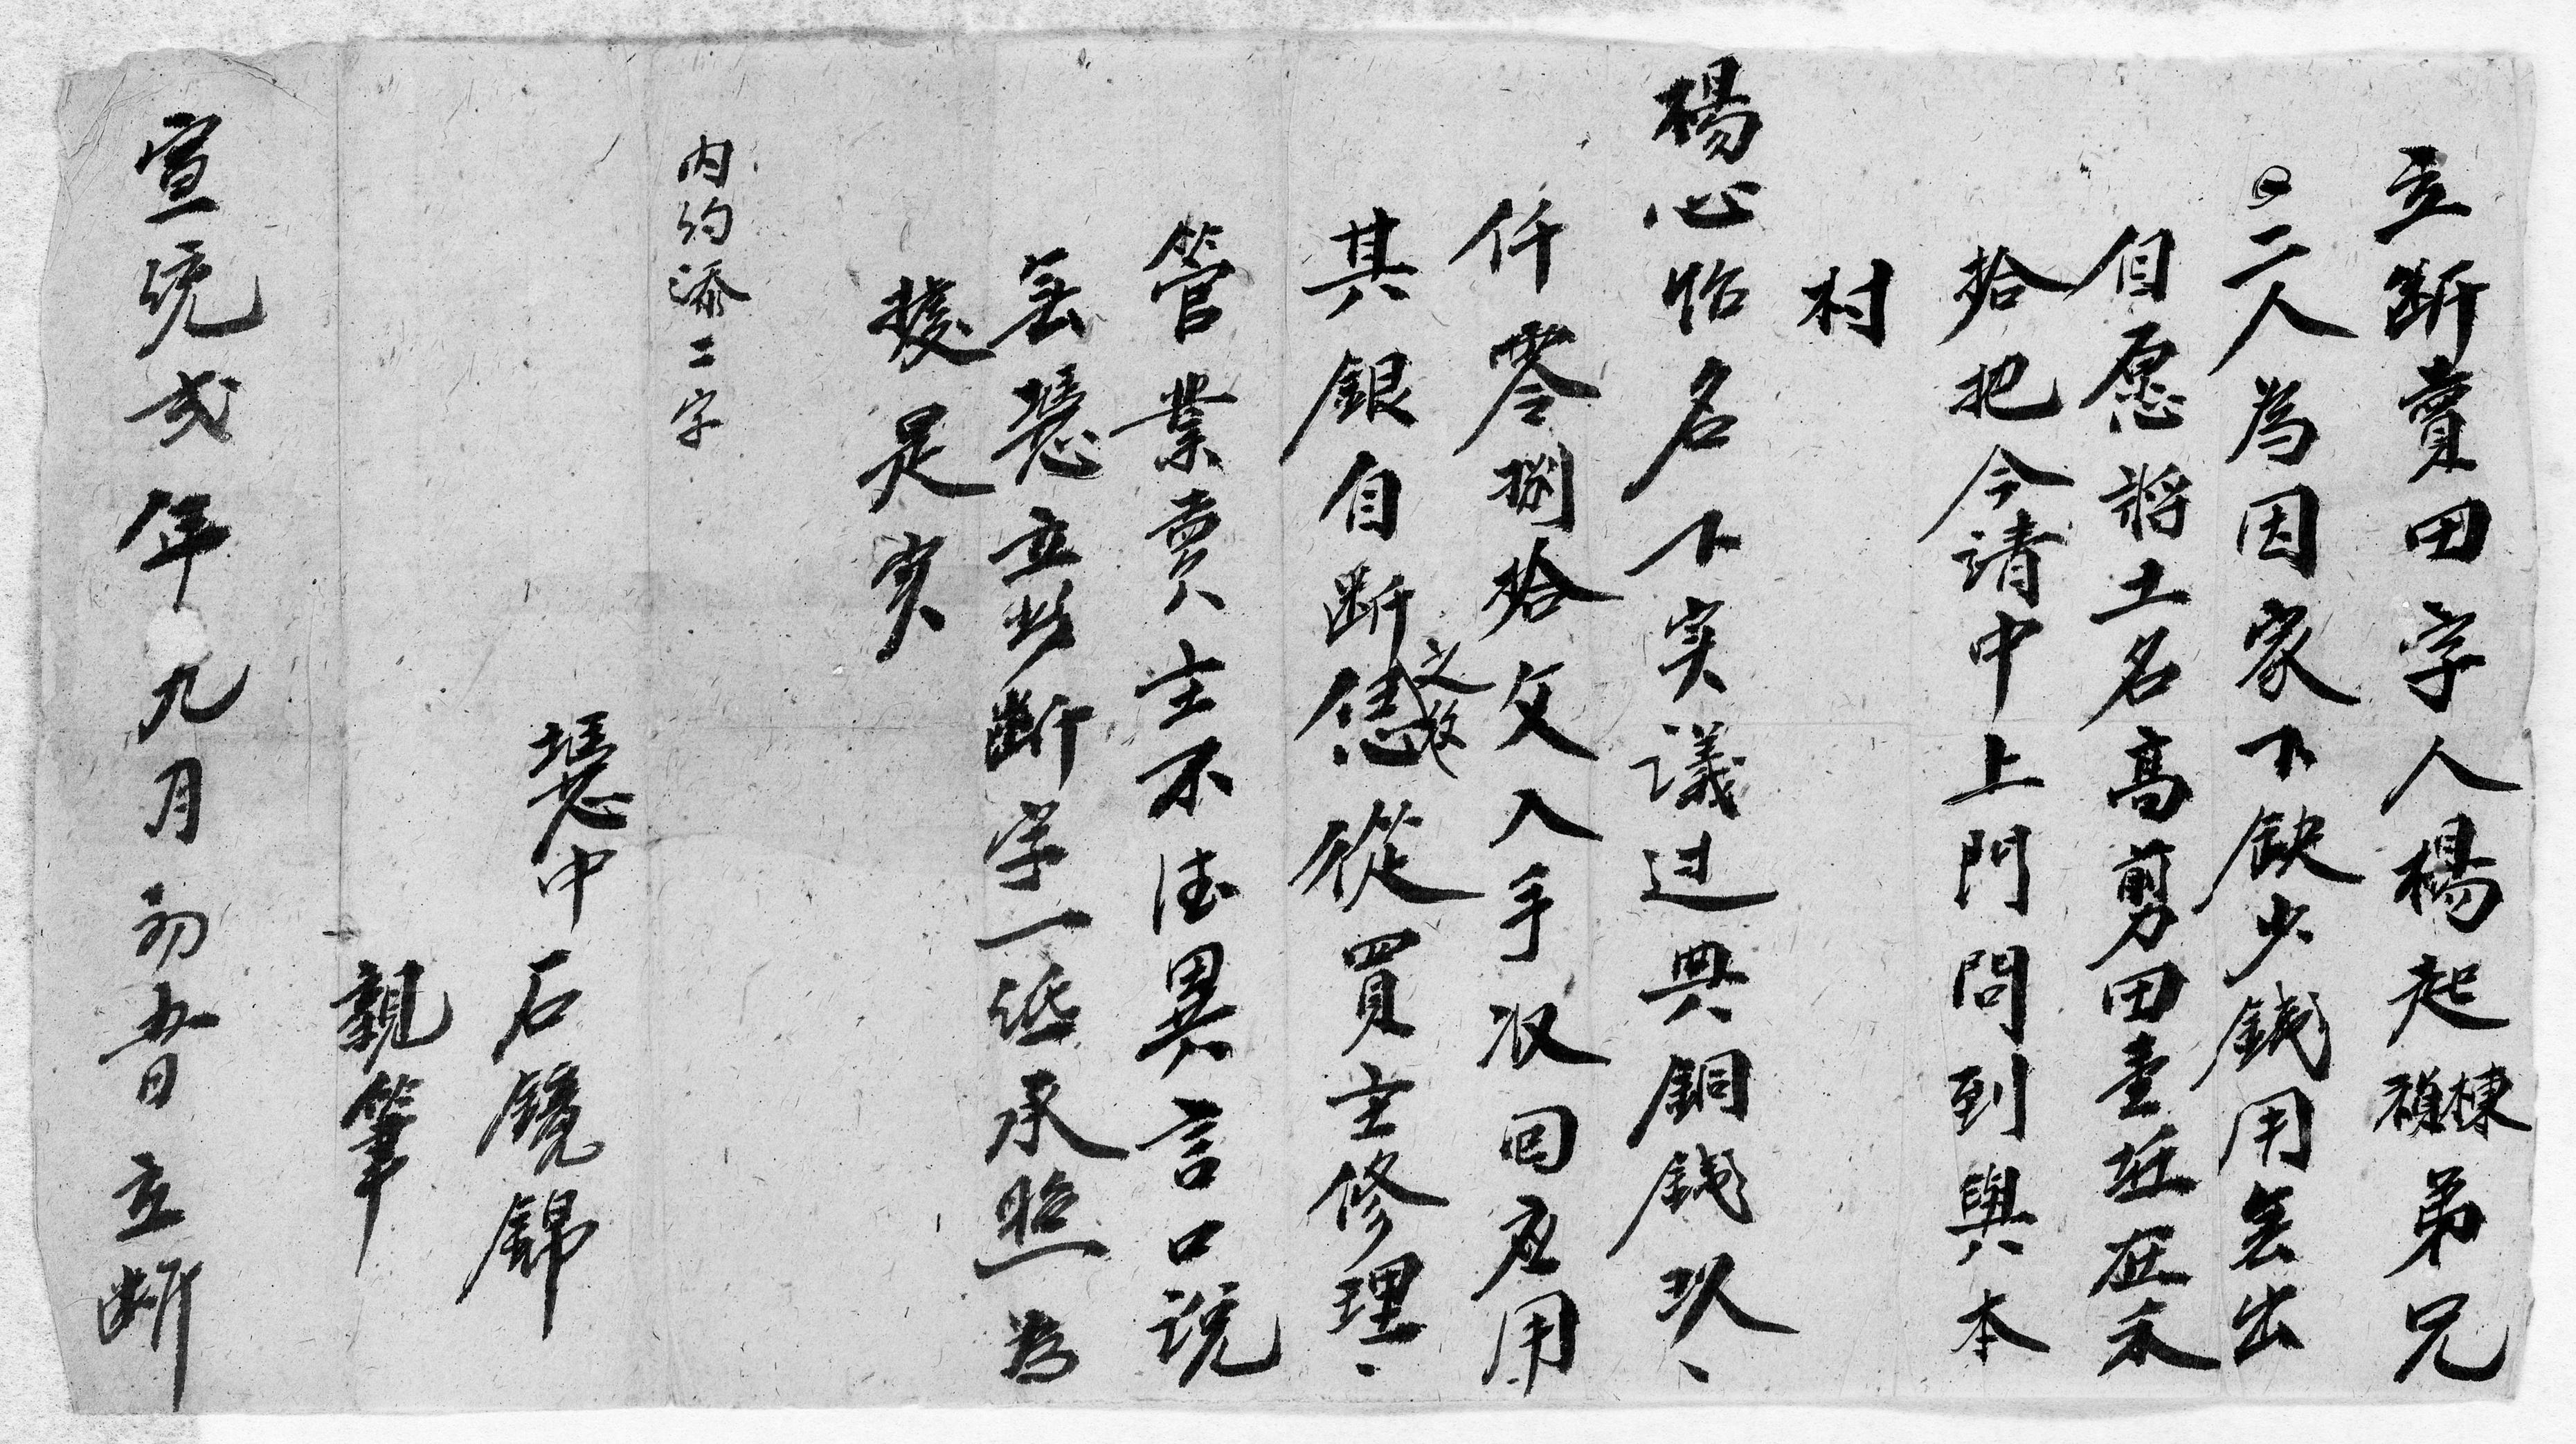 立断賣田字人楊起禎棟弟兄
二人為因家下缺少銭用无出
自愿將土名高剪田壹坵在禾
拾把今請中上門問到與本
村
楊心怡名下实議过典銅銭玖
仟零捌拾文入手収回应用
其銀自断之後恁從買主修理
管業賣主不得異言口説
无憑立此断字一纸承照為
據是实
内約添二字
憑中石鏡錦
親筆
宣統弍年九月初五日立断